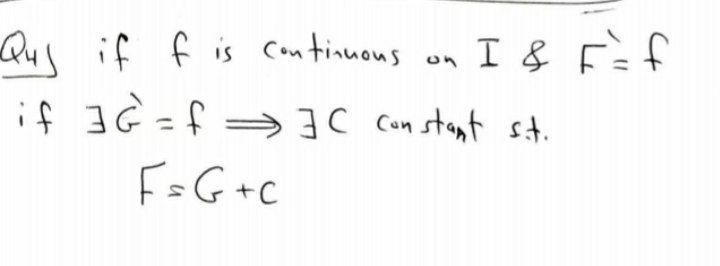 Qus if f is continuous on I & F` = f
if ∃ G` = f ⟹ ∃ C constant s.t.
F = G + C